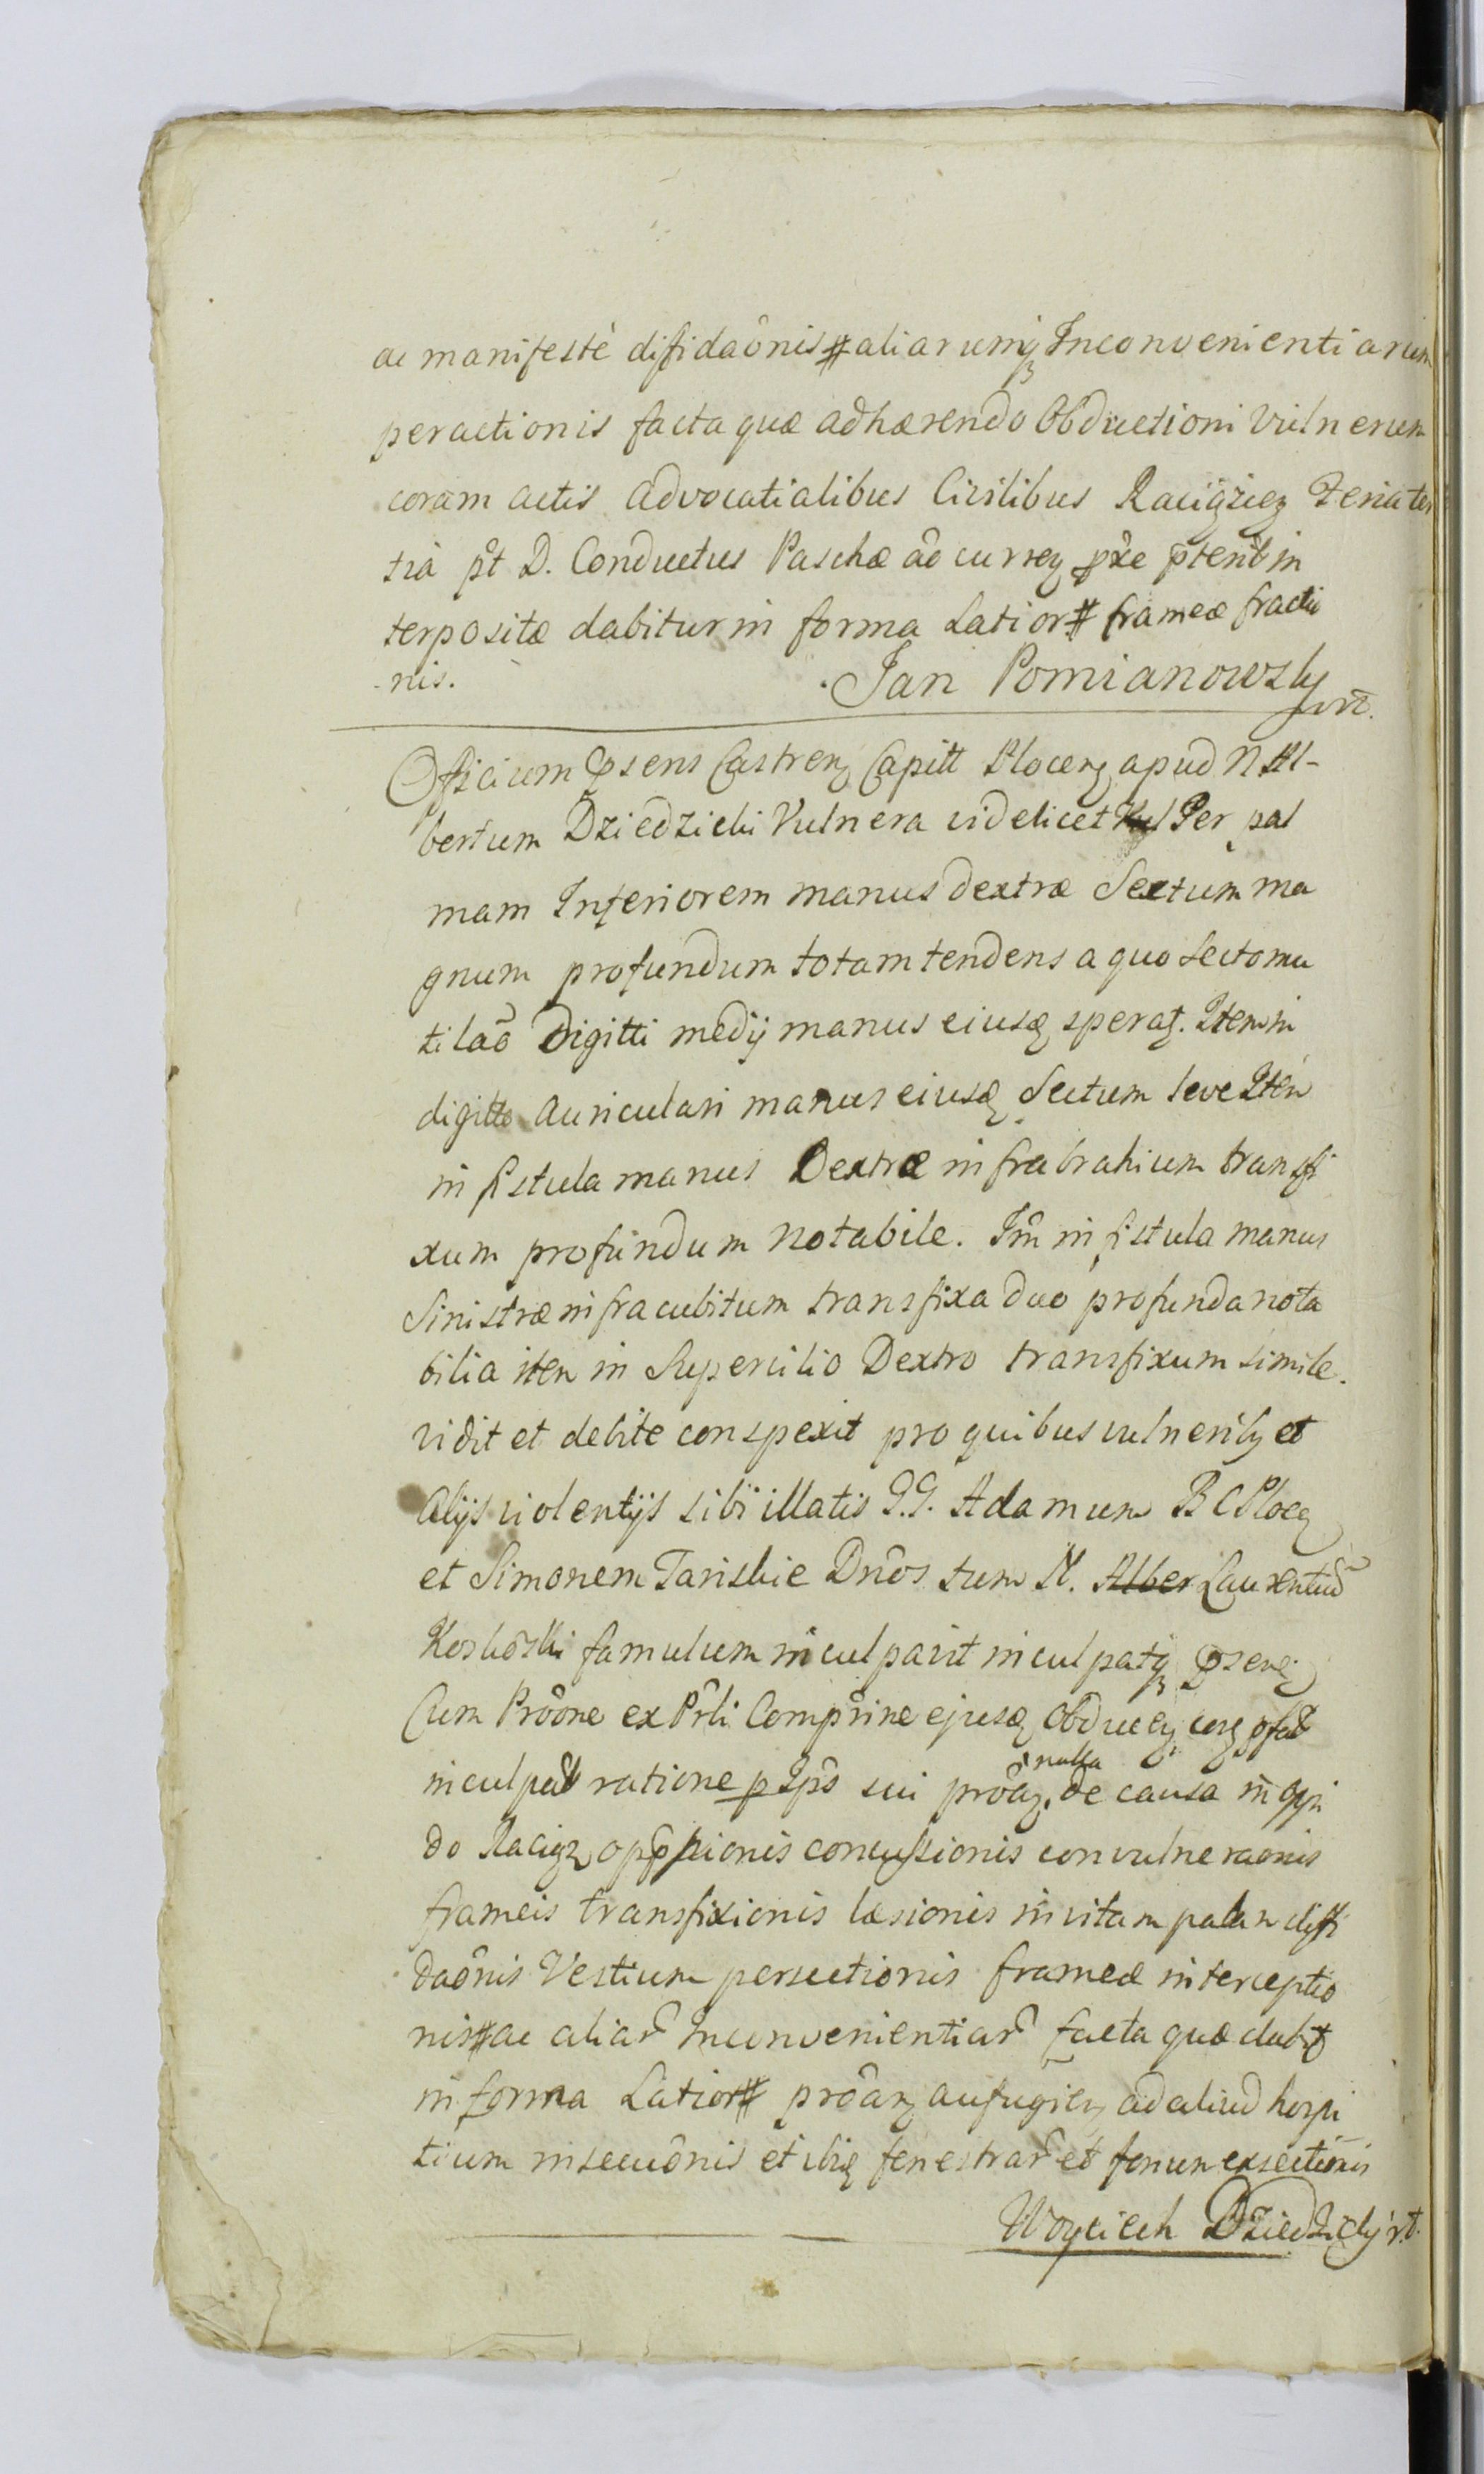 ac manifestè disfidaõnis # aliarumq Inconvenientiarum
peractionis facta quæ adhærendo Obductioni Vulnerum
coram actis advocatialibus Civilibus Raciąziez Feria ter
tia pt D. Conductus Paschæ ao curren pxe ptent in
terpositæ dabitur in forma Latior # frameæ fractio
-nis.
Jan Pomianowsky
Officium Psens Castren Capitt Plocen apud N Al-
bertum Dziedzicki Vulnera videlicet Per pal
mam Inferiorem manus dextræ Sectum ma
gnum profundum totam tendens a quo secto mu
tilaõ Digitti medij manus eiusq sperat. Item in
digitto auriculari manus eiusq Sectum leve Item
in fistula manus Dextræ infra brahium transfi
xum profundum notabile. Im in fistula manus
Sinistræ infra cubitum transfixa duo profunda nota
bilia item in Supercilio Dextro transfixum simile.
vidit et debite conspexit pro quibus vulnerib et
Alijs violentijs sibi illatis G.G. Adamum B C Ploce
et Simonem Tariskie Dnõs tum N. Alber Laurentiũ
Koskõski famulum inculpavit inculpatq psen
Cum Prõõne ex Prli Comprine ejusq Obducen
inculpat ratione p Ips sui prõa nulla de causa in oppi
do Raciąz oppssionis concussionis convulneraonis
frameis transfixionis læsionis in vitam palam diffi
daõnis Vestium persectionis frameæ interceptio
nis # ac aliar inconvenientiar facta quæ dabit
in forma Latior # prõan aufugien ad aliud hospi
tium insecuõnis et ibiq fenestrar et exsectionis
Woyciech Dziedzicky